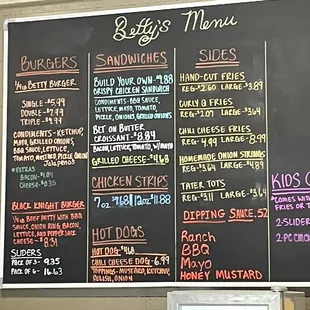 Betty's Menu
BURGERS
1/4lb BETTY BURGER
SINGLE -5.99
DOUBLE -7.99
TRIPLE -9.99
CONDIMENTS - KETCHUP
MAYO, GRILLED ONIONS
BBQ SAUCE, LETTUCE,
TOMATO, MUSTARD, PICKLE, ONION
JALAPENOS
*EXTRAS
BACON -
CHEESE -0.35
BLACK KNIGHT BURGER
1/4lb BEEF PATTY WITH BBQ
SAUCE, ONION RING, BACON,
LETTUCE, AND PEPPER JACK
CHEESE - 8.31
SLIDERS
PACK OF 3 - 9.35
PACK OF 6 - 16.63
SANDWICHES
BUILD YOUR OWN -9.88
CRISPY CHICKEN SANDWICH
CONDIMENTS - BBQ SAUCE,
LETTUCE, MAYO, TOMATO,
PICKLE, ONIONS, GRILLED ONIONS
BLT ON BUTTER
CROISSANT - 8.84
BACON, LETTUCE, TOMATO, W/MAYO
GRILLED CHEESE -4.68
CHICKEN STRIPS
7oz 12oz 11.88
HOT DOGS
HOT DOG -4.16
CHILI CHEESE DOG -6.99
TOPPINGS - MUSTARD, KETCHUP,
RELISH, ONION
SIDES
HAND-CUT FRIES
REG - 2.60 LARGE - 3.89
CURLY Q FRIES
REG - 2.07 LARGE - 3.64
CHILI CHEESE FRIES
REG - 4.99 LARGE - 8.99
HOMEMADE ONION STRINGS
REG - 3.64 LARGE - 4.89
TATER TOTS
REG - 3.11 LARGE - 3.64
DIPPING SAUCE .52
Ranch
BBQ
Mayo
HONEY MUSTARD
KIDS
*COMES WITH
FRIES OR T
2-SLIDER
2-PC CHICK